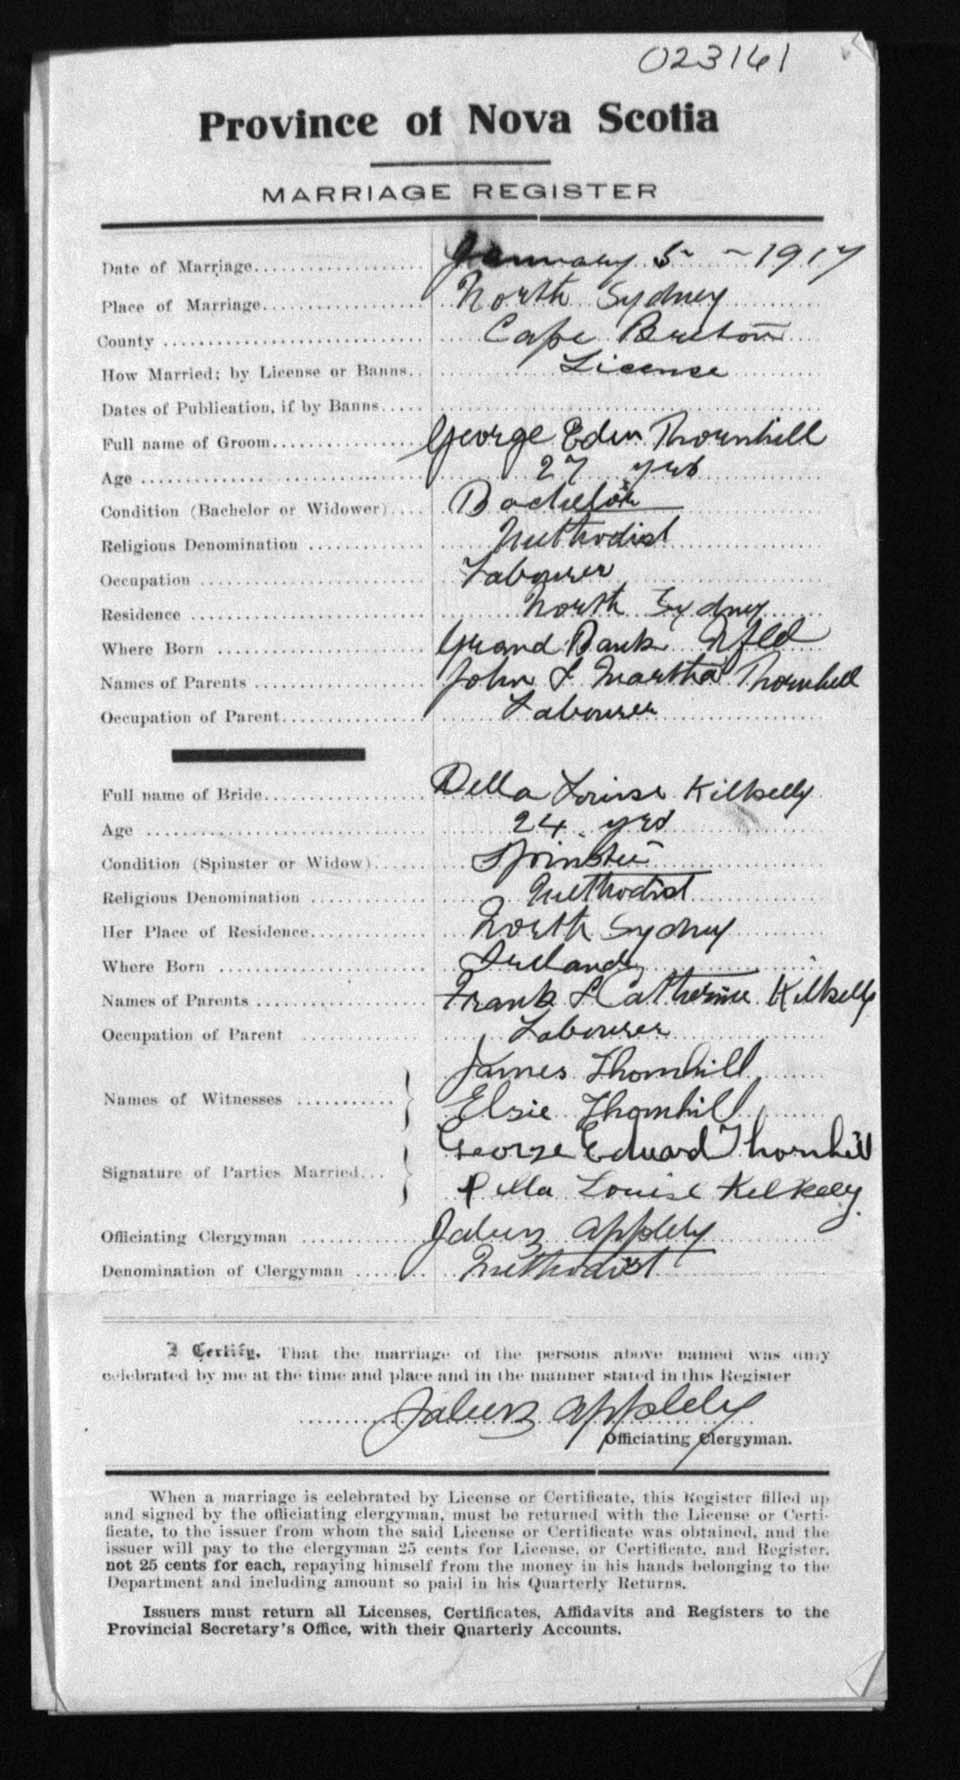 023161
Province of Nova Scotia
MARRIAGE REGISTER
Date of Marriage.................... January 5 - 1917
Place of Marriage.................... North Sydney
County .............................. Cape Breton
How Married; by License or Banns.. License
Dates of Publication, if by Banns.....
Full name of Groom.................. George Eden Thornhill
Age ................................. 27 yrs
Condition (Bachelor or Widower).... Bachelor
Religious Denomination ............. Methodist
Occupation .......................... Labourer
Residence ........................... North Sydney
Where Born .......................... Grand Bank Nfld
Names of Parents .................... John & Martha Thornhill
Occupation of Parent................. Labourer
Full name of Bride................... Della Louise Kilkelly
Age ................................. 24 yrs
Condition (Spinster or Widow)....... Spinster
Religious Denomination ............. Methodist
Her Place of Residence.............. North Sydney
Where Born .......................... Ireland
Names of Parents .................... Frank & Catherine Kilkelly
Occupation of Parent ................ Labourer
James Thornhill
Names of Witnesses ........... Elsie Thornhill
George Eduard Thornhill
Signature of Parties Married... Della Louise Kelkelly
Officiating Clergyman ............... Appleby
Denomination of Clergyman ........ Methodist
I Certify, That the marriage of the persons above named was duly
celebrated by me at the time and place and in the manner stated in this Register
Appleby
Officiating Clergyman.
When a marriage is celebrated by License or Certificate, this Register filled up
and signed by the officiating clergyman, must be returned with the License or Certi-
ficate, to the issuer from whom the said License or Certificate was obtained, and the
issuer will pay to the clergyman 25 cents for License, or Certificate, and Register,
not 25 cents for each, repaying himself from the money in his hands belonging to the
Department and including amount so paid in his Quarterly Returns.
Issuers must return all Licenses, Certificates, Affidavits and Registers to the
Provincial Secretary's Office, with their Quarterly Accounts.